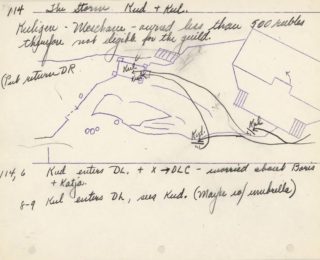 114 The Storm Kud + Kul.
Kuligin - Merchant - owned less than 500 rubles
therefore not eligible for the guild.
(Put return DR
Kul
Kud
Kul
114, 6 Kud enters DL. + x → DLC - worried about Boris
+ Katja.
8-9 Kul enters DL, sees Kud. (Maybe w/ umbrella)